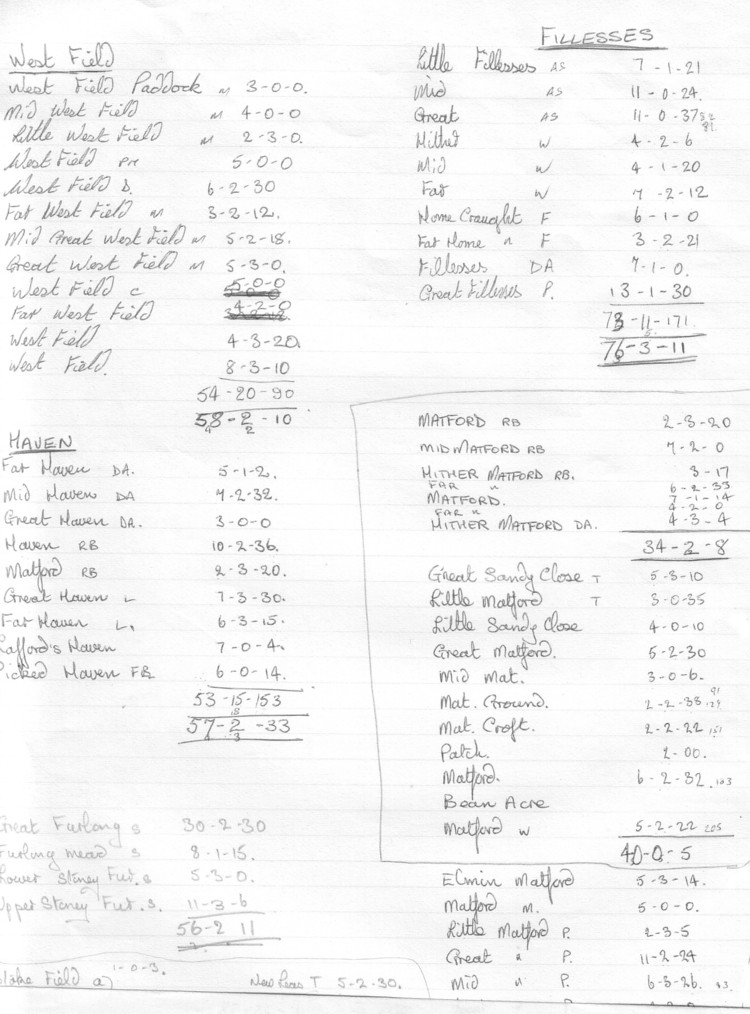 West Field
West Field Paddock m 3-0-0.
Mid West Field m 4-0-0
Little West Field m 2-3-0.
West Field PM 5-0-0
West Field D. 6-2-30
Far West Field m 3-2-12.
Mid Great West Field m 5-2-18.
Great West Field m 5-3-0.
West Field C 5-0-0
Far West Field 4-2-0
West Field 4-3-20.
West Field. 8-3-10
54-20-90
58-2-10
HAVEN
Far Haven DA. 5-1-2.
Mid Haven DA 7-2-32.
Great Haven DA. 3-0-0
Haven RB 10-2-36.
Matford RB 2-3-20.
Great Haven L 7-3-30.
Far Haven L. 6-3-15.
Lafford's Haven 7-0-4.
Picked Haven FB 6-0-14.
53-15-153
57-2-33
Great Furlong S 30-2-30
Furlong mead S 8-1-15.
Lower Stoney Fur. S 5-3-0.
Upper Stoney Fur. S. 11-3-6
56-2 11
Field a) 1-0-3.
New Leas T 5-2-30.
FILLESSES
Little Fillesses AS 7-1-21
Mid AS 11-0-24.
Great AS 11-0-37
Hither W 4-2-6
Mid W 4-1-20
Far W 7-2-12
Home Craught F 6-1-0
Far Home " F 3-2-21
Fillesses DA 7-1-0.
Great Fillesses P. 13-1-30
73-11-171
76-3-11
MATFORD RB 2-3-20
MID MATFORD RB 7-2-0
HITHER MATFORD RB. 3-17
FAR " 6-2-33
MATFORD. 7-1-14
FAR " 4-2-0
HITHER MATFORD DA. 4-3-4
34-2-8
Great Sandy Close T 5-3-10
Little Matford T 3-0-35
Little Sandy Close 4-0-10
Great Matford. 5-2-30
Mid Mat. 3-0-6.
Mat. Ground. 2-2-38 91 129
Mat. Croft. 2-2-22 151
Patch. 2-00.
Matford. 6-2-32. 183
Bean Acre
Matford W 5-2-22 205
40-0-5
Elmin Matford 5-3-14.
Matford M. 5-0-0.
Little Matford P. 2-3-5
Great " P. 11-2-24
Mid " P. 6-3-26. 43.